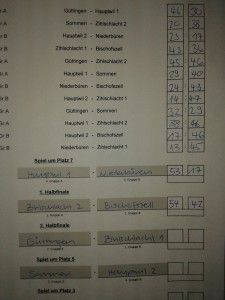 Gr A Güttingen - Hauptwil 1 46 30
Gr A Sommeri - Zihlschlacht 2 20 38
Gr B Hauptwil 2 - Niederbüren 23 17
Gr B Zihlschlacht 1 - Bischofszell 43 36
Gr A Güttingen - Zihlschlacht 2 45 46
Gr A Hauptwil 1 - Sommeri 29 40
Gr B Niederbüren - Bischofszell 24 43
Hauptwil 2 - Zihlschlacht 1 14
Güttingen - Sommeri 32 29
Gr A Hauptwil 1 - Zihlschlacht 2 38 46
Gr B Hauptwil 2 - Bischofszell 17 46
Gr B Niederbüren - Zihlschlacht 1 13 45
Spiel um Platz 7
Hauptwil 1 - Niederbüren 53 17
1. Halbfinale
Zihlschlacht 2 - Bischofszell 54 42
2. Halbfinale
Güttingen - Zihlschlacht 1
Spiel um Platz 5
Sommeri - Hauptwil 2
Spiel um Platz 3